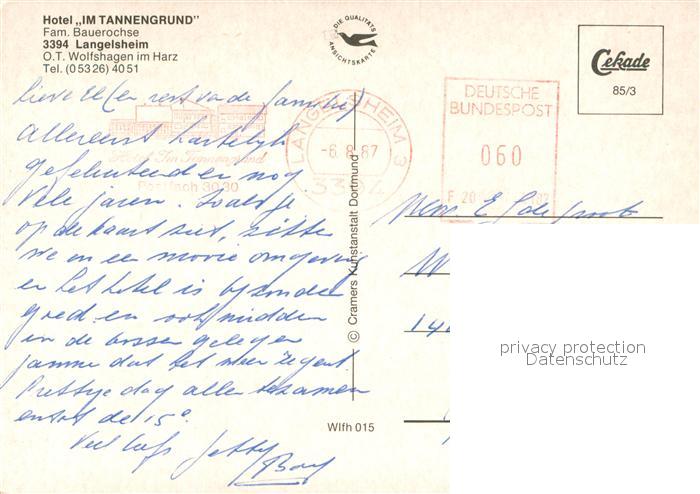 Hotel „IM TANNENGRUND"
Fam. Bauerochse
3394 Langelsheim
O.T. Wolfshagen im Harz
Tel. (0 53 26) 40 51
DIE QUALITÄTS
ANSICHTSKARTE
Cekade
85/3
LANGELSHEIM 3
-6.8.87
3394
DEUTSCHE
BUNDESPOST
060
F 20
Hotel Im Tannengrund
Postfach 30 30
Lieve El (en rest v/d familie)
Allereerst hartelijk
gefeliciteerd en nog
vele jaren. Zoals je
op de kaart ziet, zitten
we in een mooie omgeving
en het hotel is bijzonder
goed en ook midden
in de bossen gelegen
jammer dat het weer zegent.
Prettige dag allen tezamen
en tot de 15e.
Veel liefs Jetty
Mevr. E
© Cramers Kunstanstalt Dortmund
Wlfh 015
privacy protection
Datenschutz